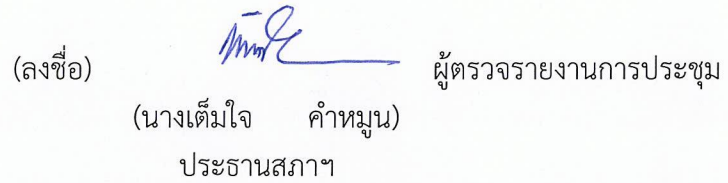 (ลงชื่อ) ผู้ตรวจรายงานการประชุม
(นางเต็มใจ คำหมูน)
ประธานสภาฯ